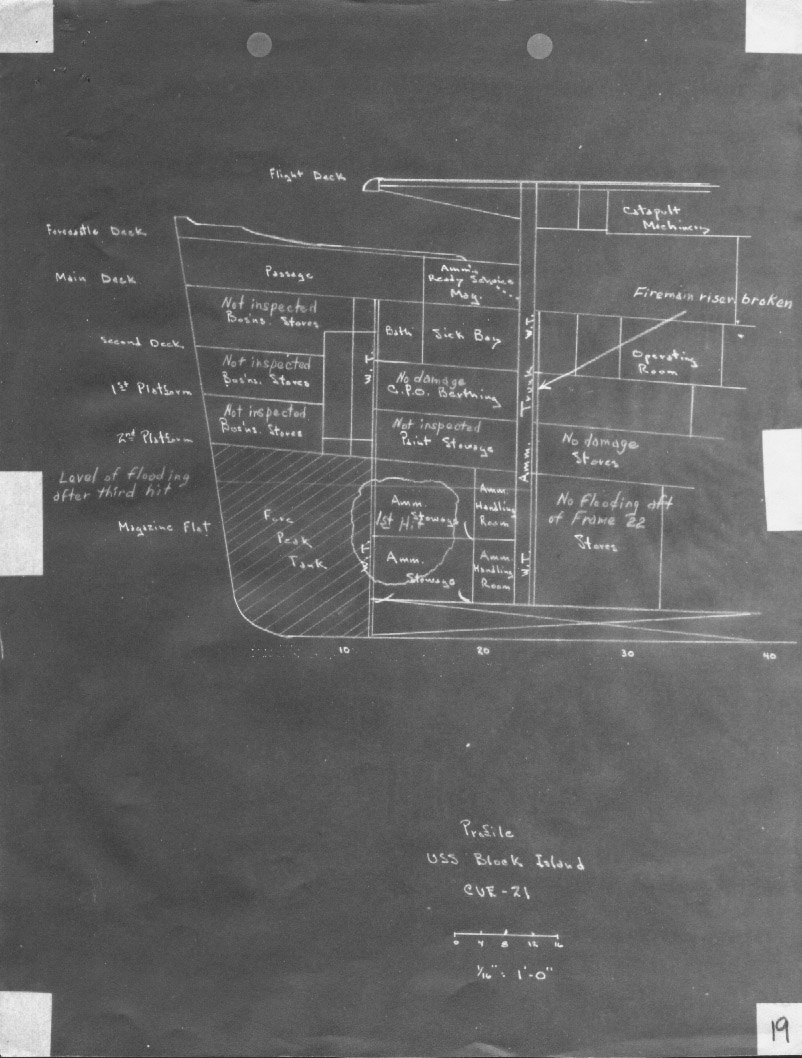 Flight Deck
Catapult
Machinery
Forecastle Deck
Main Deck
Passage
Amm'n
Ready Service
Mag.
Not inspected
Bos'ns. Stores
Firemain riser broken
Second Deck
Bath
Sick Bay
W.T.
W.T.
Operating
Room
Not inspected
Bos'ns. Stores
1st Platform
No damage
C.P.O. Berthing
Amm. Trunk
Not inspected
Bos'ns. Stores
2nd Platform
Not inspected
Paint Stowage
No damage
Stores
Level of flooding
after third hit
Magazine Flat
Fore
Peak
Tank
Amm.
Stowage
1st Hit
Amm.
Handling
Room
No flooding aft
of Frame 22
Stores
W.T.
Amm.
Stowage
Amm
Handling
Room
W.T.
10
20
30
40
Profile
USS Block Island
CVE-21
0 4 8 12 16
1/16" = 1'-0"
19